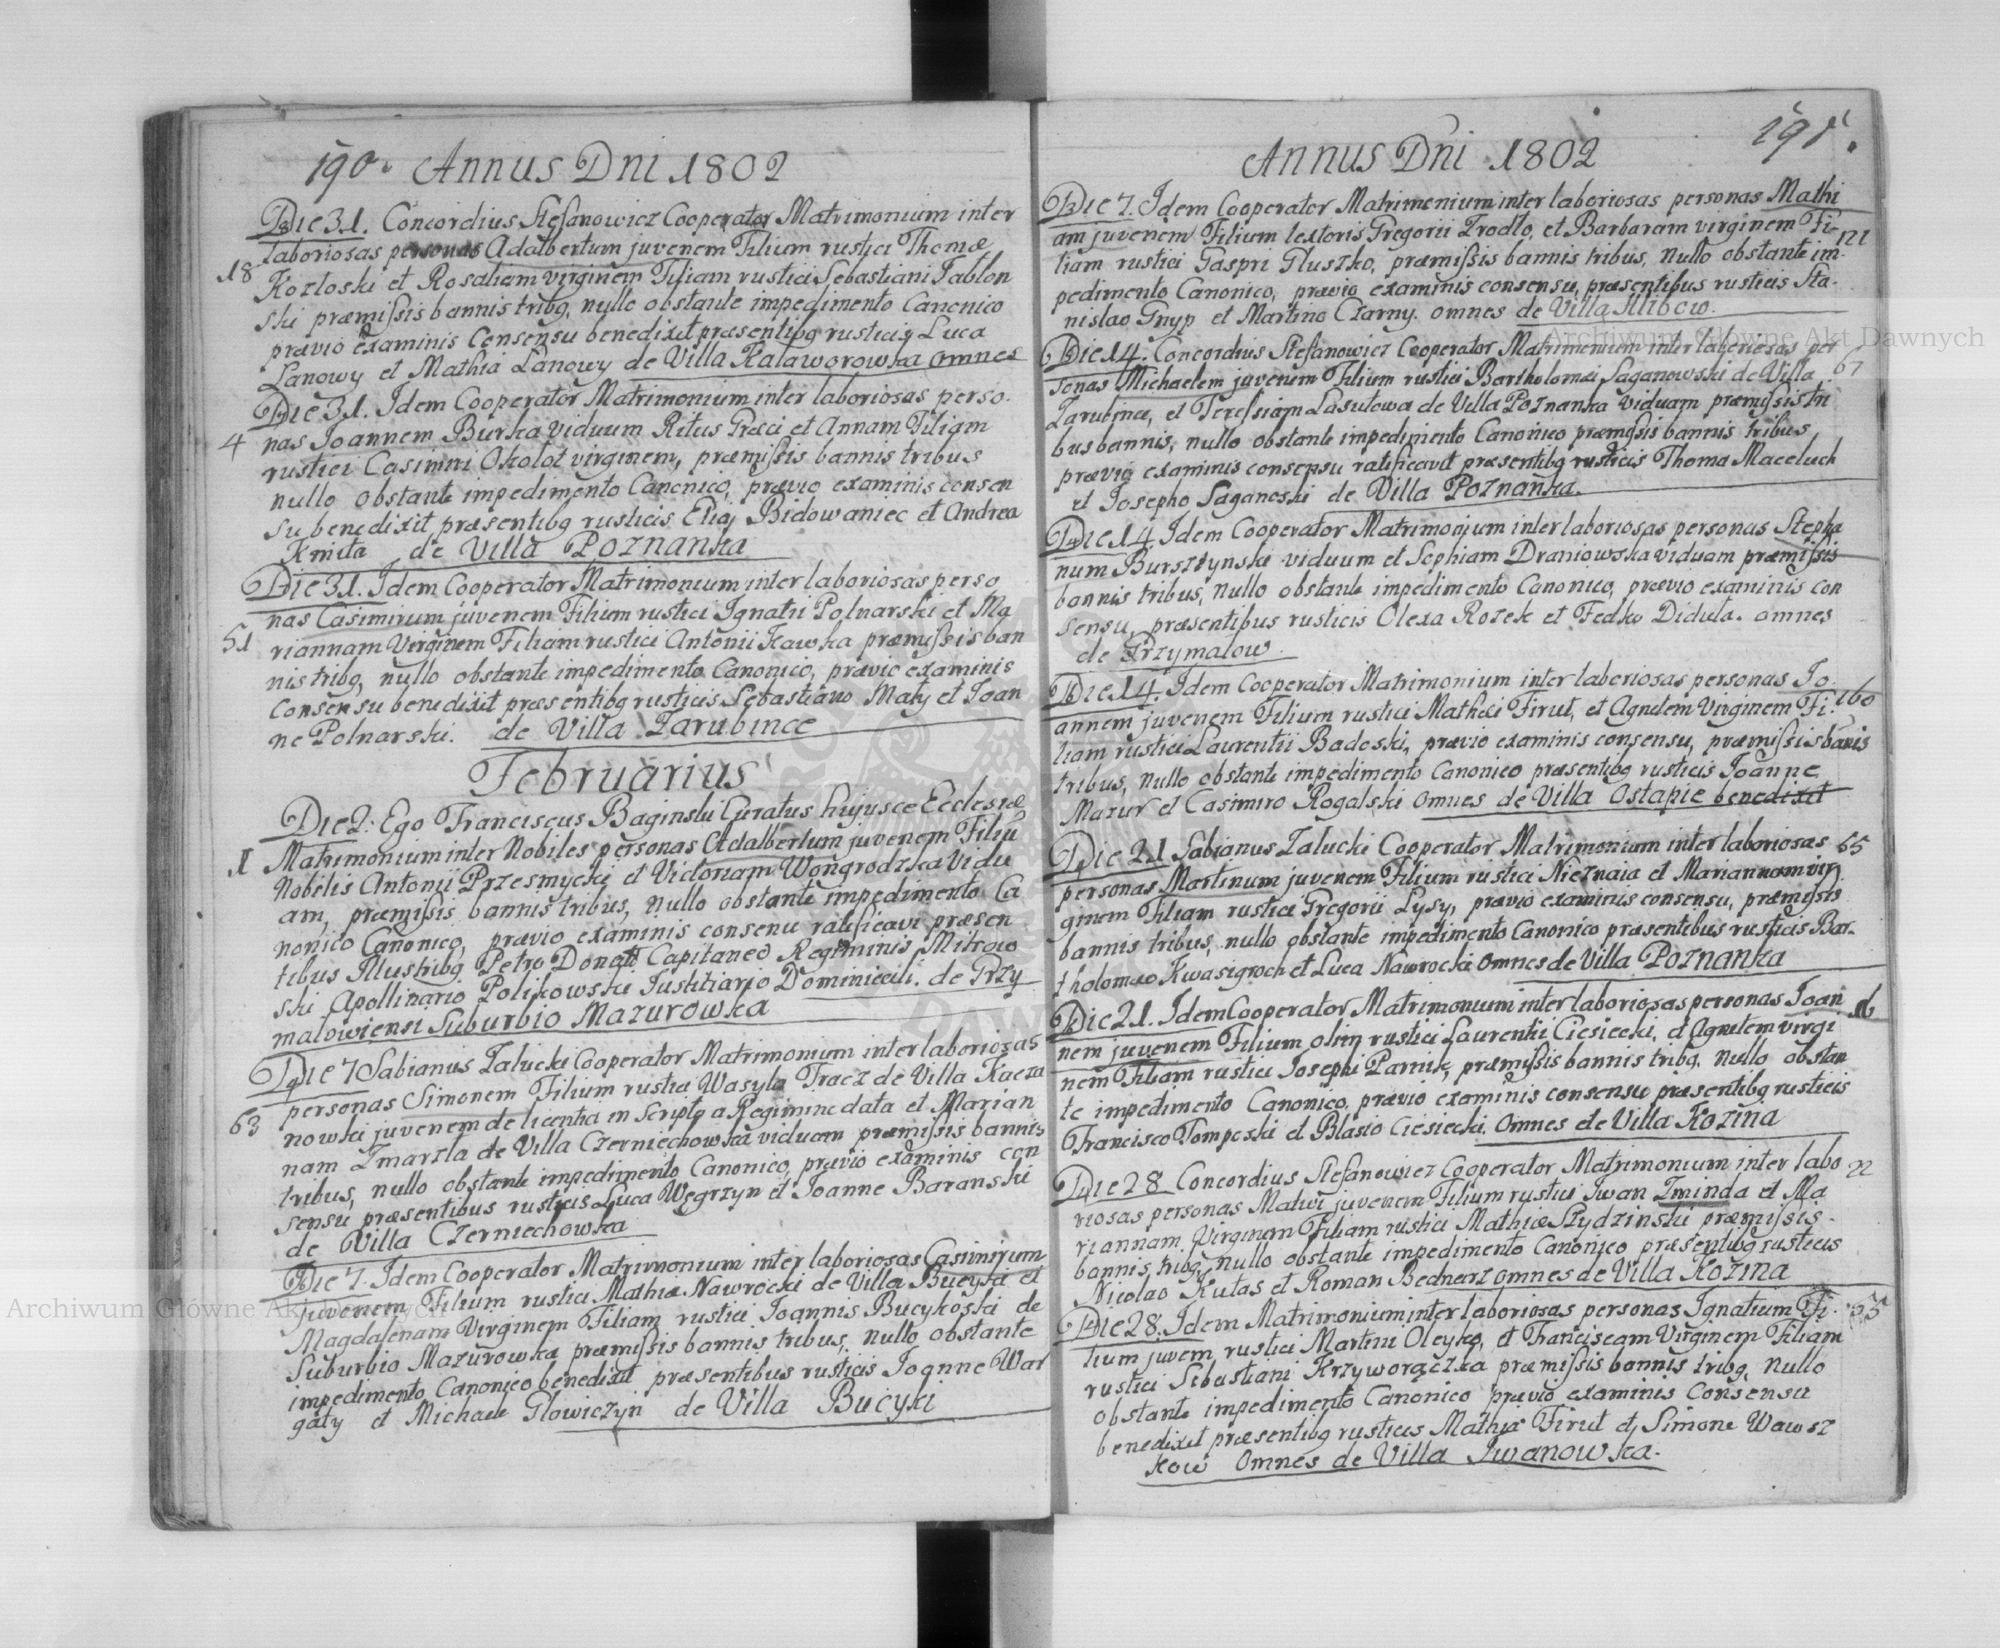 190. Annus Dni 1802
Die 31. Concordius Stefanowicz Cooperator Matrimonium inter
laboriosas personas Adalbertum juvenem Filium rustici Thomæ
18
Kozloski et Rosaliam virginem Filiam rustici Sebastiani Jablon
ski præmissis bannis tribq, nullo obstante impedimento Canonico
prævio examinis Consensu benedixit præsentibq rusticis Luca
Lanowy et Mathia Lanowy de Villa Kalaworowka omnes
Die 31. Idem Cooperator Matrimonium inter laboriosas perso.
4
nas Joannem Burka viduum Ritus Græci et Annam Filiam
rustici Casimiri Okolot virginem, præmissis bannis tribus
nullo obstante impedimento Canonico, prævio examinis consen
su benedixit præsentibq rusticis Eliaj Bidowaniec et Andrea
Kmita de Villa Poznanka
Die 31. Idem Cooperator Matrimonium inter laboriosas perso
nas Casimirum juvenem Filium rustici Ignatii Polnarski et Ma
51
riannam Virginem Filiam rustici Antonii Kawka præmissis ban
nis tribq, nullo obstante impedimento Canonico, prævio examinis
Consensu benedixit præsentibq rusticis Sebastiano Maty et Joan
ne Polnarski. de Villa Zarubince
Februarius
Die 2. Ego Franciscus Baginski Curatus hujusce Ecclesiæ
1
Matrimonium inter Nobiles personas Adalbertum juvenem Filiu
Nobilis Antonii Przesmycki et Victoriam Wongrodzka Vidu
am, præmissis bannis tribus, nullo obstante impedimento Ca
nonico Canonico, prævio examinis consenu ratificavi præsen
tibus Illustribq Petro Donati Capitaneo Regiminis Mitrow
ski Apollinario Polikowski Justitiario Dominicali. de Przy
malowiensi Suburbio Mazurowka
Die 7 Fabianus Zalucki Cooperator Matrimonium inter laboriosas
personas Simonem Filium rustici Wasyla Tracz de Villa Kacza
63
nowki juvenem de licentia in Scripto a Regimine data et Marian
nam Zmarzla de Villa Czerniechowka viduam præmissis bannis
tribus, nullo obstante impedimento Canonico, prævio examinis con
sensu præsentibus rusticis Luca Węgrzyn et Joanne Baranski
de Villa Czerniechowka
Die 7. Idem Cooperator Matrimonium inter laboriosas Casimirum
juvenem Filium rustici Mathiæ Nawrocki de Villa Bucyka et
Magdalenam Virginem Filiam rustici Joannis Bucykoski de
Suburbio Mazurowka præmissis bannis tribus, nullo obstante
impedimento Canonico benedixit præsentibus rusticis Joanne War
gaty et Michaele Glowiczyn de Villa Bucyki
191.
Annus Dni 1802
Die 7. Idem Cooperator Matrimonium inter laboriosas personas Mathi
am juvenem Filium textoris Gregorii Zrodlo, et Barbaram virginem Fi-
121
liam rustici Gaspri Gluszko, præmissis bannis tribus, nullo obstante im-
pedimento Canonico, prævio examinis consensu, præsentibus rusticis Sta-
nislao Gnyp et Martino Czarny. omnes de Villa Hlibow.
Die 14. Concordius Stefanowicz Cooperator Matrimonium inter laboriosas per
sonas Michaelem juvenem Filium rustici Bartholomæi Saganowski de Villa
67
Zarubince, et Teressiam Lasutowa de Villa Poznanka viduam præmissis tri
bus bannis, nullo obstante impedimento Canonico præmissis bannis tribus
prævio examinis consensu ratificavit præsentibq rusticis Thoma Maceluch
et Josepho Saganoski de Villa Poznanka.
Die 14. Idem Cooperator Matrimonium inter laboriosas personas Stepha
num Bursztynski viduum et Sophiam Draniowska viduam præmissis
bannis tribus, nullo obstante impedimento Canonico, prævio examinis con
sensu, præsentibus rusticis Olexa Rozek et Fedko Didula. omnes
de Przymalow.
Die 14. Idem Cooperator Matrimonium inter laboriosas personas Jo-
annem juvenem Filium rustici Mathiæ Firut, et Agnetem Virginem Fi-
160
liam rustici Laurentii Badoski, prævio examinis consensu, præmissis bannis
tribus, nullo obstante impedimento Canonico præsentibq rusticis Joanne
Mazur et Casimiro Rogalski omnes de Villa Ostapie benedixit
Die 21 Fabianus Zalucki Cooperator Matrimonium inter laboriosas
55
personas Martinum juvenem Filium rustici Nieznaia et Mariannam vir
ginem Filiam rustici Gregorii Lysy, prævio examinis consensu, præmissis
bannis tribus, nullo obstante impedimento Canonico præsentibus rusticis Bar-
tholomæo Kwasigroch et Luca Nawrocki omnes de Villa Poznanka
Die 21. Idem Cooperator Matrimonium inter laboriosas personas Joan
nem juvenem Filium olim rustici Laurentii Ciesiecki, et Agnetem virgi
nem Filiam rustici Josephi Parnik, præmissis bannis tribq, nullo obstan
te impedimento Canonico, prævio examinis consensu præsentibq rusticis
Francisco Tomposki et Blasio Ciesiecki. Omnes de Villa Kozina
Die 28 Concordius Stefanowicz Cooperator Matrimonium inter labo
22
riosas personas Matwi juvenem Filium rustici Iwan Zminda et Ma
riannam Virginem Filiam rustici Mathiæ Szydzinski præmissis
bannis, tribq, nullo obstante impedimento Canonico præsentibq rusticis
Nicolao Kutas et Roman Bednarz omnes de Villa Kozina
Die 28. Idem Matrimonium inter laboriosas personas Ignatium Fi-
55
lium juvem rustici Martini Oleyko, et Franciscam Virginem Filiam
rustici Sebastiani Krzyworączka præmissis bannis tribq, nullo
obstante impedimento Canonico prævio examinis Consensu
benedixit præsentibq rusticis Mathia Firut et Simone Wawsz
kow Omnes de Villa Iwanowka.
Archiwum Główne Akt Dawnych
Archiwum Główne Akt Dawnych